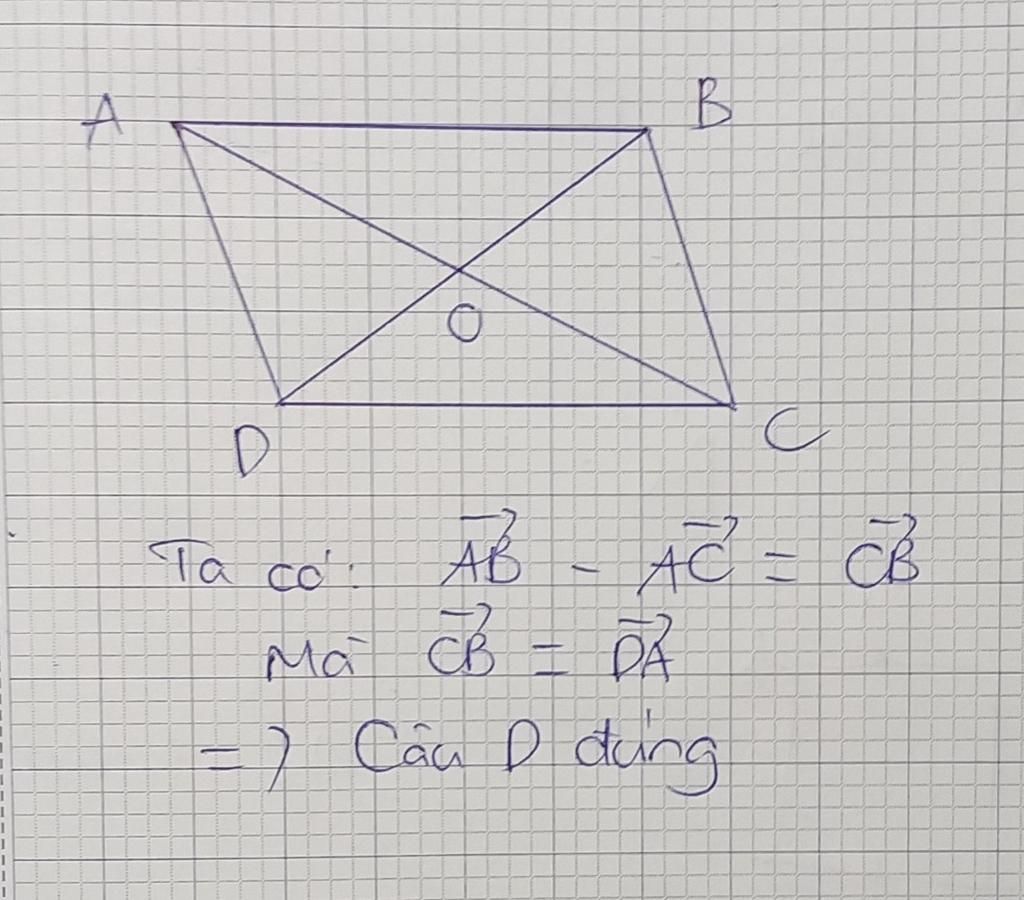 A
B
O
D
C
Ta có: $\overrightarrow{AB}$ - $\overrightarrow{AC}$ = $\overrightarrow{CB}$
Mà $\overrightarrow{CB}$ = $\overrightarrow{DA}$
=> Câu D đúng